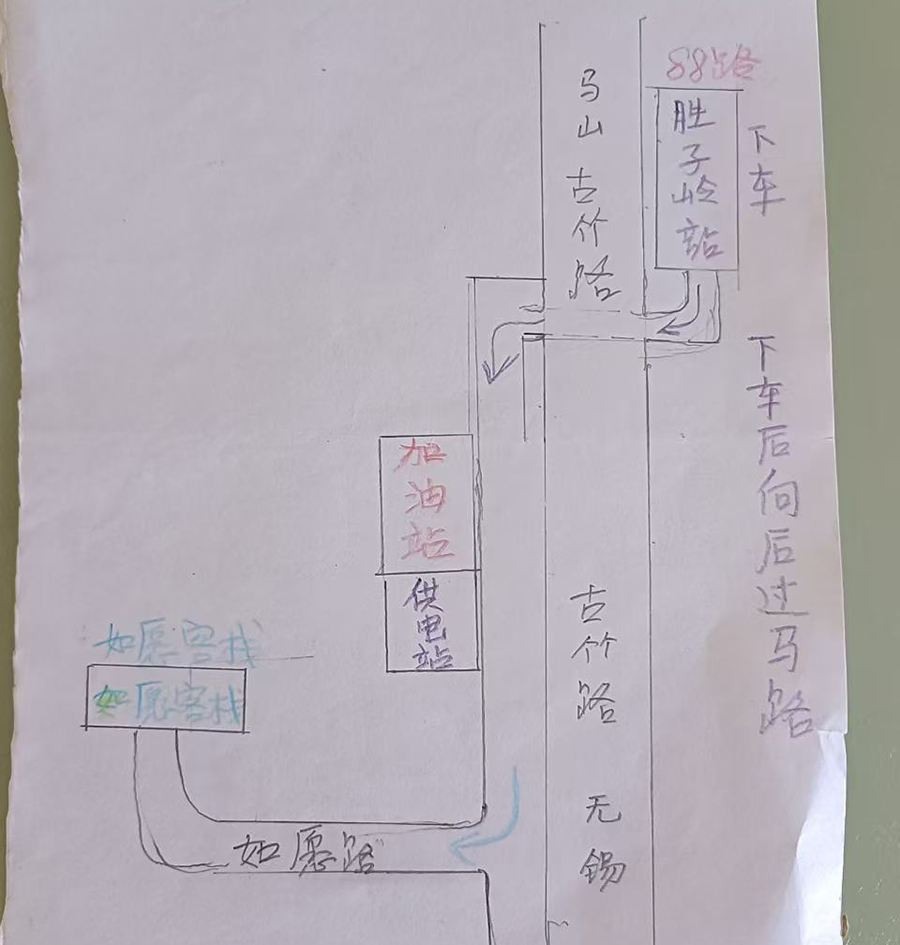 88路
胜子岭站
下车
马山古竹路
下车后向后过马路
加油站
供电站
古竹路 无锡
如愿客栈
如愿客栈
如愿路